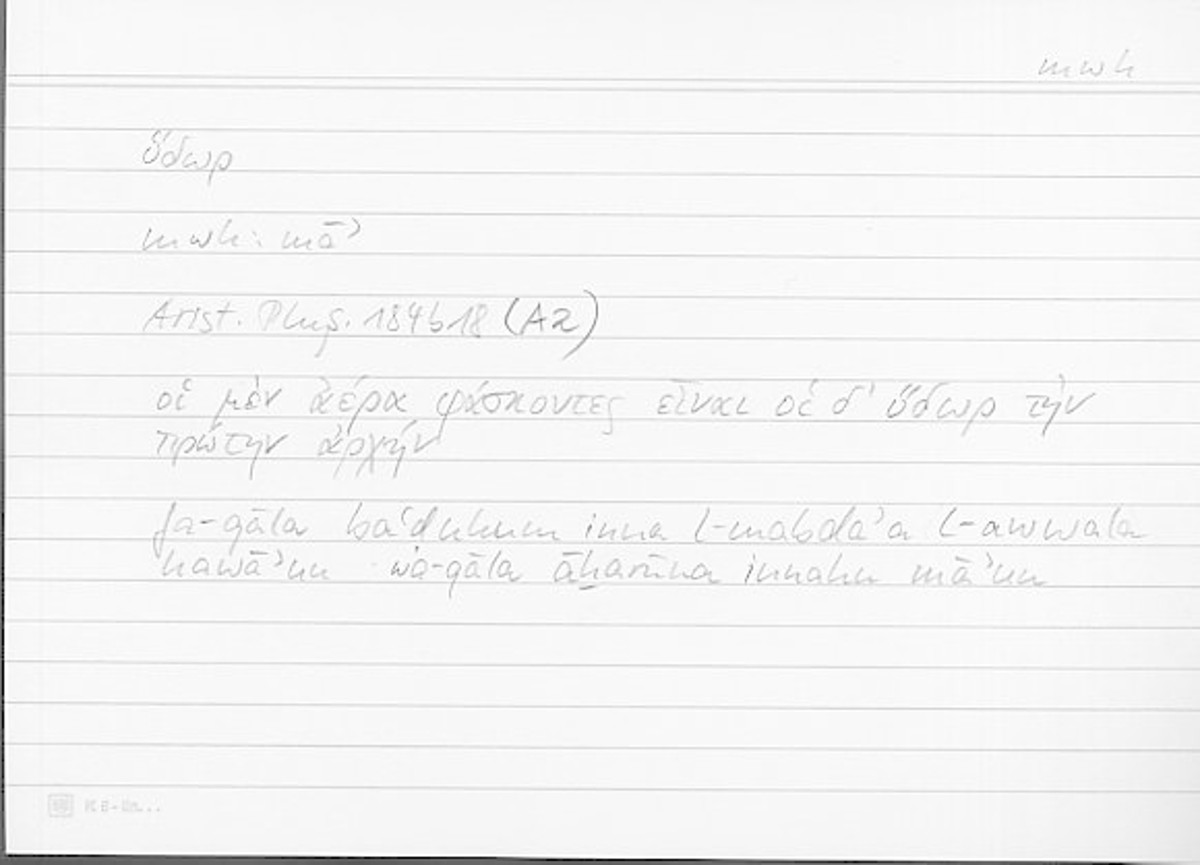 mwh
ὕδωρ
mwh: māʾ
Arist. Phys. 184b18 (A2)
οἱ μὲν ἀέρα φάσκοντες εἶναι οἱ δ' ὕδωρ τὴν
πρώτην ἀρχήν
fa-qāla baʿduhum inna l-mabdaʾa l-awwala
hawāʾun wa-qāla āḫarūna innahu māʾun